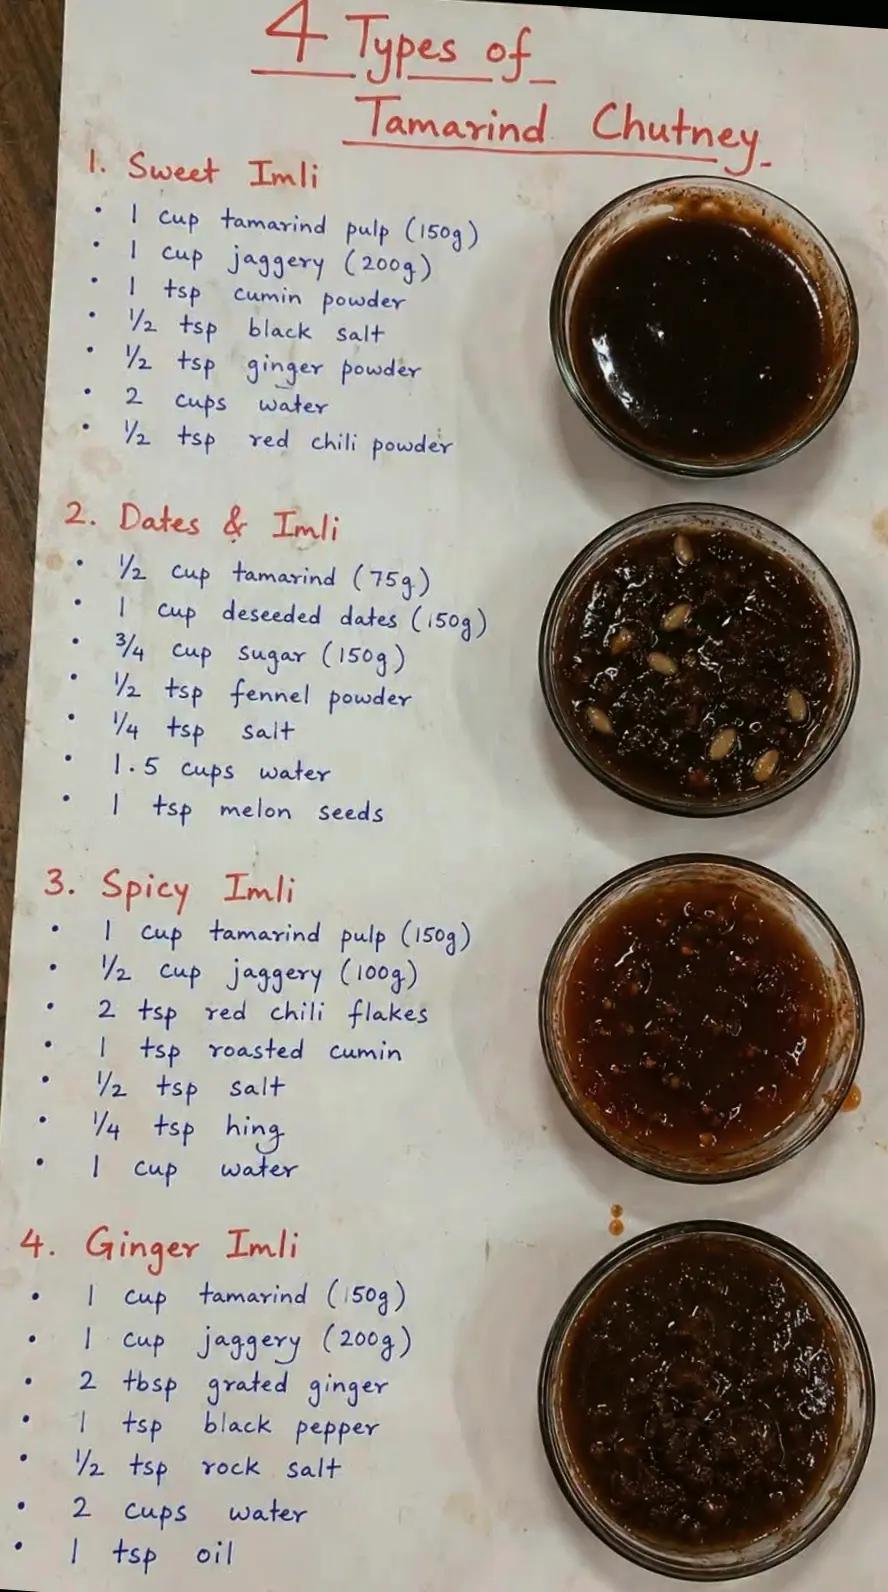 4 Types of
Tamarind Chutney
1. Sweet Imli
• 1 cup tamarind pulp (150g)
• 1 cup jaggery (200g)
• 1 tsp cumin powder
• 1/2 tsp black salt
• 1/2 tsp ginger powder
• 2 cups water
• 1/2 tsp red chili powder
2. Dates & Imli
• 1/2 cup tamarind (75g)
• 1 cup deseeded dates (150g)
• 3/4 cup sugar (150g)
• 1/2 tsp fennel powder
• 1/4 tsp salt
• 1.5 cups water
• 1 tsp melon seeds
3. Spicy Imli
• 1 cup tamarind pulp (150g)
• 1/2 cup jaggery (100g)
• 2 tsp red chili flakes
• 1 tsp roasted cumin
• 1/2 tsp salt
• 1/4 tsp hing
• 1 cup water
4. Ginger Imli
• 1 cup tamarind (150g)
• 1 cup jaggery (200g)
• 2 tbsp grated ginger
• 1 tsp black pepper
• 1/2 tsp rock salt
• 2 cups water
• 1 tsp oil